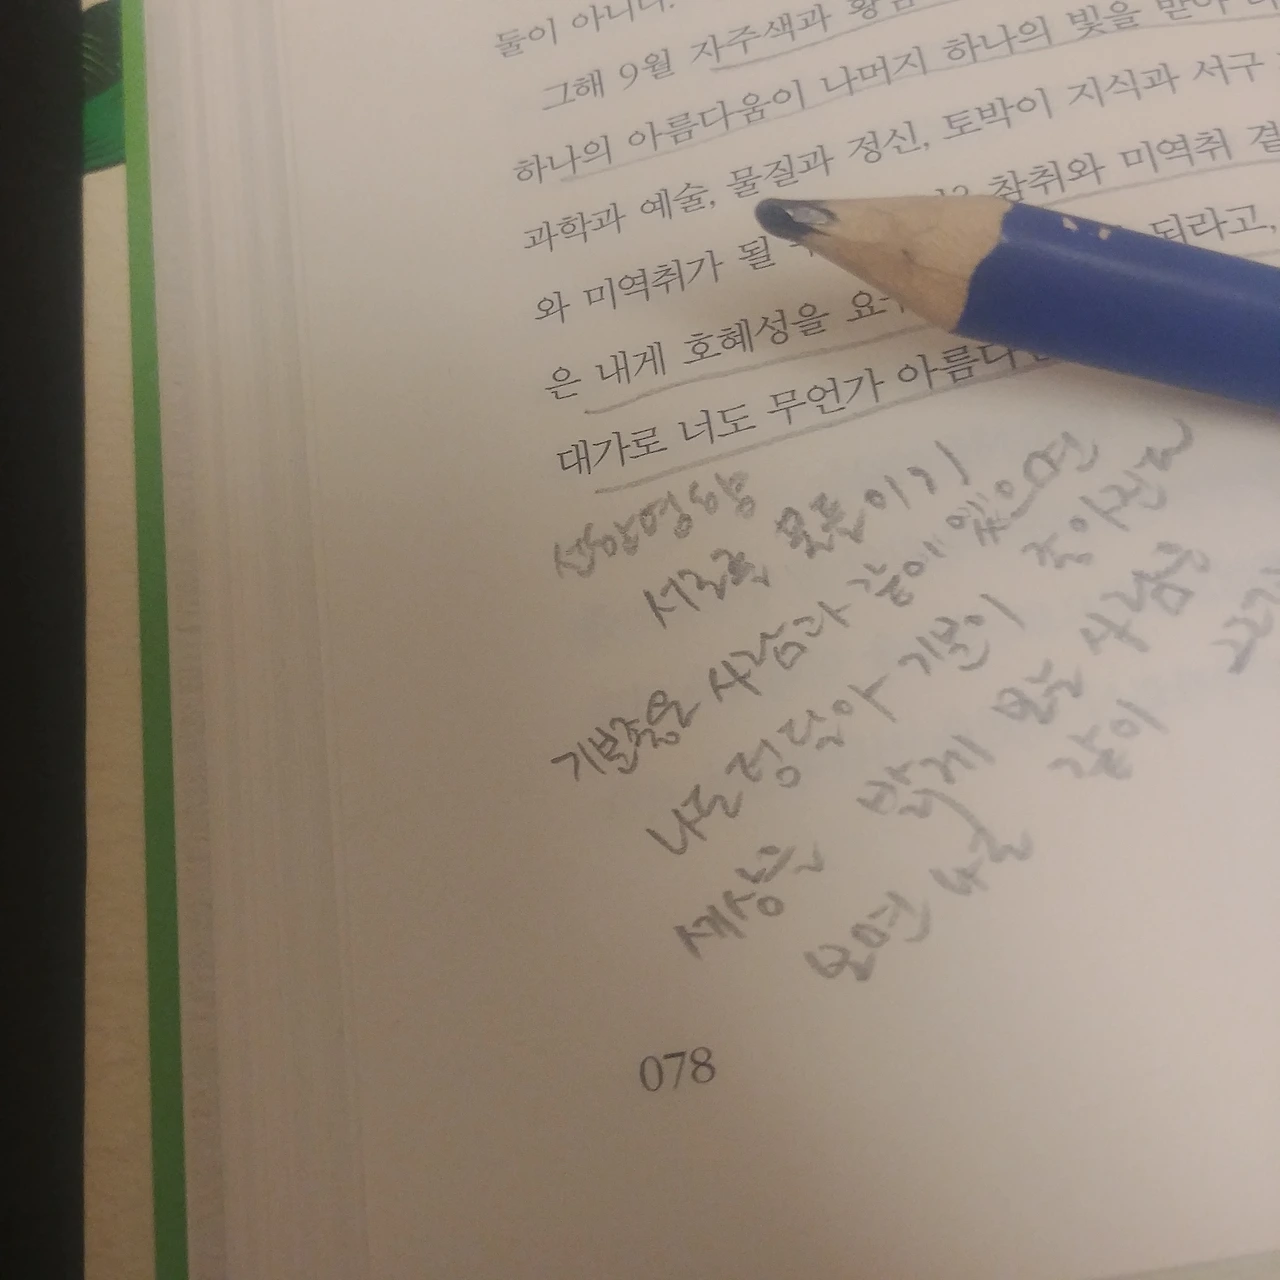 둘이 아니다.
그해 9월 자주색과 황금
하나의 아름다움이 나머지 하나의 빛을 받아
과학과 예술, 물질과 정신, 토박이 지식과 서구
참취와 미역취
와 미역취가 될 되라고,
은 내게 호혜성을
대가로 너도 무언가
선한영향
서로 물들이기
기분좋은 사람과 같이 있으면
나도 덩달아 기분이 좋아진다
세상은 밝게 보는 사람은
보면 나도 같이
078